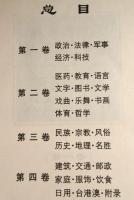 总目
第一卷
政治·法律·军事
经济·科技
第二卷
医药·教育·语言
文字·图书·文学
戏曲·乐舞·书画
体育·哲学
第三卷
民族·宗教·民俗
历史·地理·名胜
第四卷
建筑·交通·邮政
家庭·服饰·饮食
日用·台港澳·附录